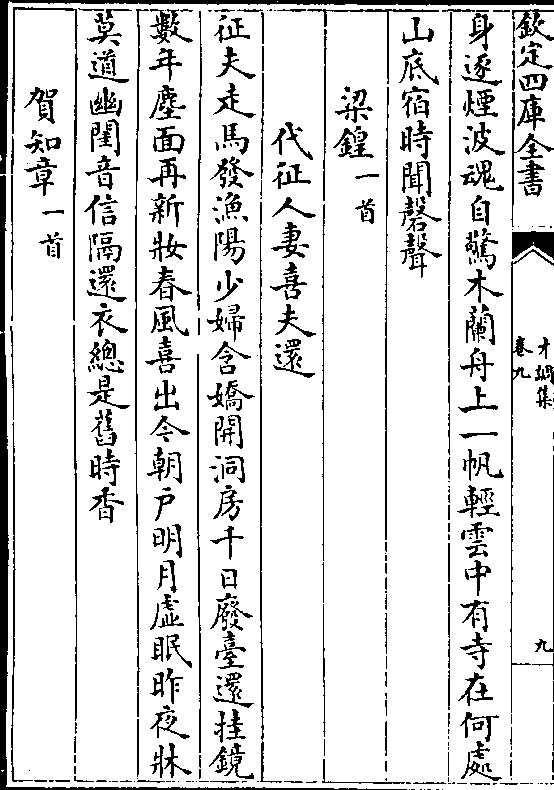 欽定四庫全書
才調集
卷九
九
身逐煙波魂自驚木蘭舟上一帆輕雲中有寺在何處
山底宿時聞磬聲
梁鍠一首
代征人妻喜夫還
征夫走馬發漁陽少婦含嬌開洞房千日廢臺還挂鏡
數年塵面再新妝春風喜出今朝戶明月虛眠昨夜牀
莫道幽閨音信隔還衣總是舊時香
賀知章一首